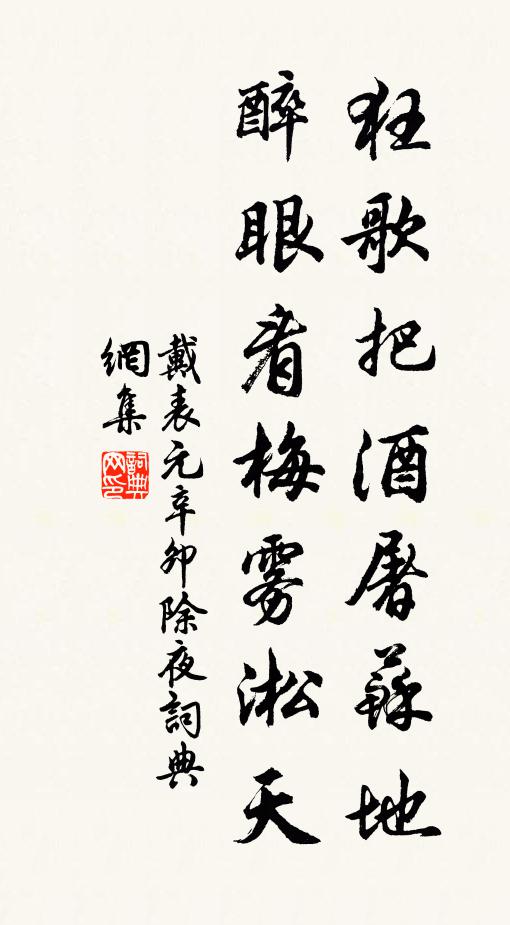 狂歌把酒屠蘇地
醉眼看梅雾淞天
戴表元辛卯除夜詞典
網集
詞典
网印